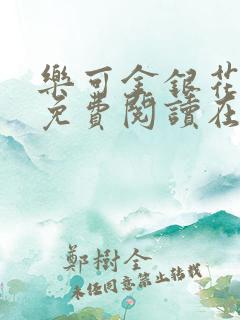 樂可金銀花
免費閱讀在
鄭樹全
未任同意禁止转载